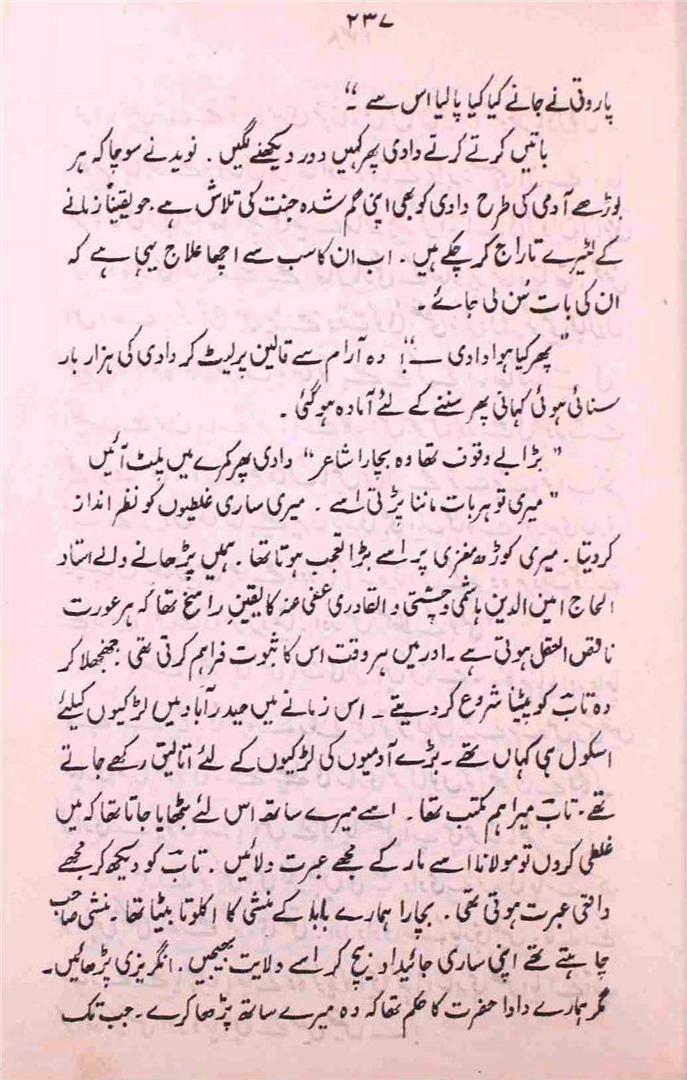 ۲۳۷
پاروتی نے جانے کیا کیا پا لیا اس سے ۔"
باتیں کرتے کرتے دادی پھر کہیں دور دیکھنے لگیں ۔ نوید نے سوچا کہ ہر
بوڑھے آدمی کی طرح دادی کو بھی اپنی گم شدہ جنت کی تلاش ہے جو یقیناً زمانے
کے لٹیرے تاراج کر چکے ہیں ۔ اب ان کا سب سے اچھا علاج یہی ہے کہ
ان کی بات سُن لی جائے ۔
"پھر کیا ہوا دادی ــــ؟" وہ آرام سے قالین پر لیٹ کر دادی کی ہزار بار
سنائی ہوئی کہانی پھر سننے کے لئے آمادہ ہو گئی ۔
"بڑا بے وقوف تھا وہ بچارا شاعر" دادی پھر کمرے میں پلٹ آئیں
"میری تو ہر بات ماننا پڑتی اسے ۔ میری ساری غلطیوں کو نظر انداز
کر دیتا ۔ میری کوڑھ مغزی پر اسے بڑا تعجب ہوتا تھا ۔ ہمیں پڑھانے والے استاد
الحاج امین الدین ہاشمی و چشتی و القادری عفی عنہ کا یقینِ راسخ تھا کہ ہر عورت
ناقص العقل ہوتی ہے ۔ اور میں ہر وقت اس کا ثبوت فراہم کرتی تھی جھنجھلا کر
وہ تابؔ کو پیٹنا شروع کر دیتے ۔ اس زمانے میں حیدرآباد میں لڑکیوں کیلئے
اسکول ہی کہاں تھے ۔ بڑے آدمیوں کی لڑکیوں کے لئے اتالیق رکھے جاتے
تھے ۔ تابؔ میرا ہم مکتب تھا ۔ اسے میرے ساتھ اس لئے بٹھایا جاتا تھا کہ میں
غلطی کروں تو مولانا اسے مار کے مجھے عبرت دلائیں ۔ تابؔ کو دیکھ کر مجھے
واقعی عبرت ہوتی تھی ۔ بچارا ہمارے بابا کے منشی کا اکلوتا بیٹا تھا ۔ منشی صاحب
چاہتے تھے اپنی ساری جائیداد بیچ کر اسے ولایت بھیجیں ۔ انگریزی پڑھائیں ۔
مگر ہمارے دادا حضرت کا حکم تھا کہ وہ میرے ساتھ پڑھا کرے ۔ جب تک